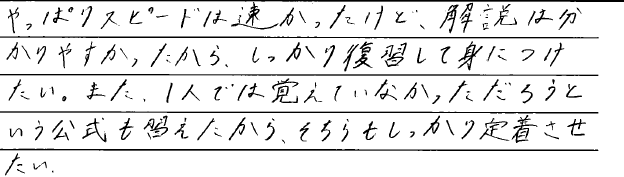 やっぱりスピードは速かったけど、解説は分
かりやすかったから、しっかり復習して身につけ
たい。また、1人では覚えていなかっただろうと
いう公式も習えたから、そちらもしっかり定着させ
たい.